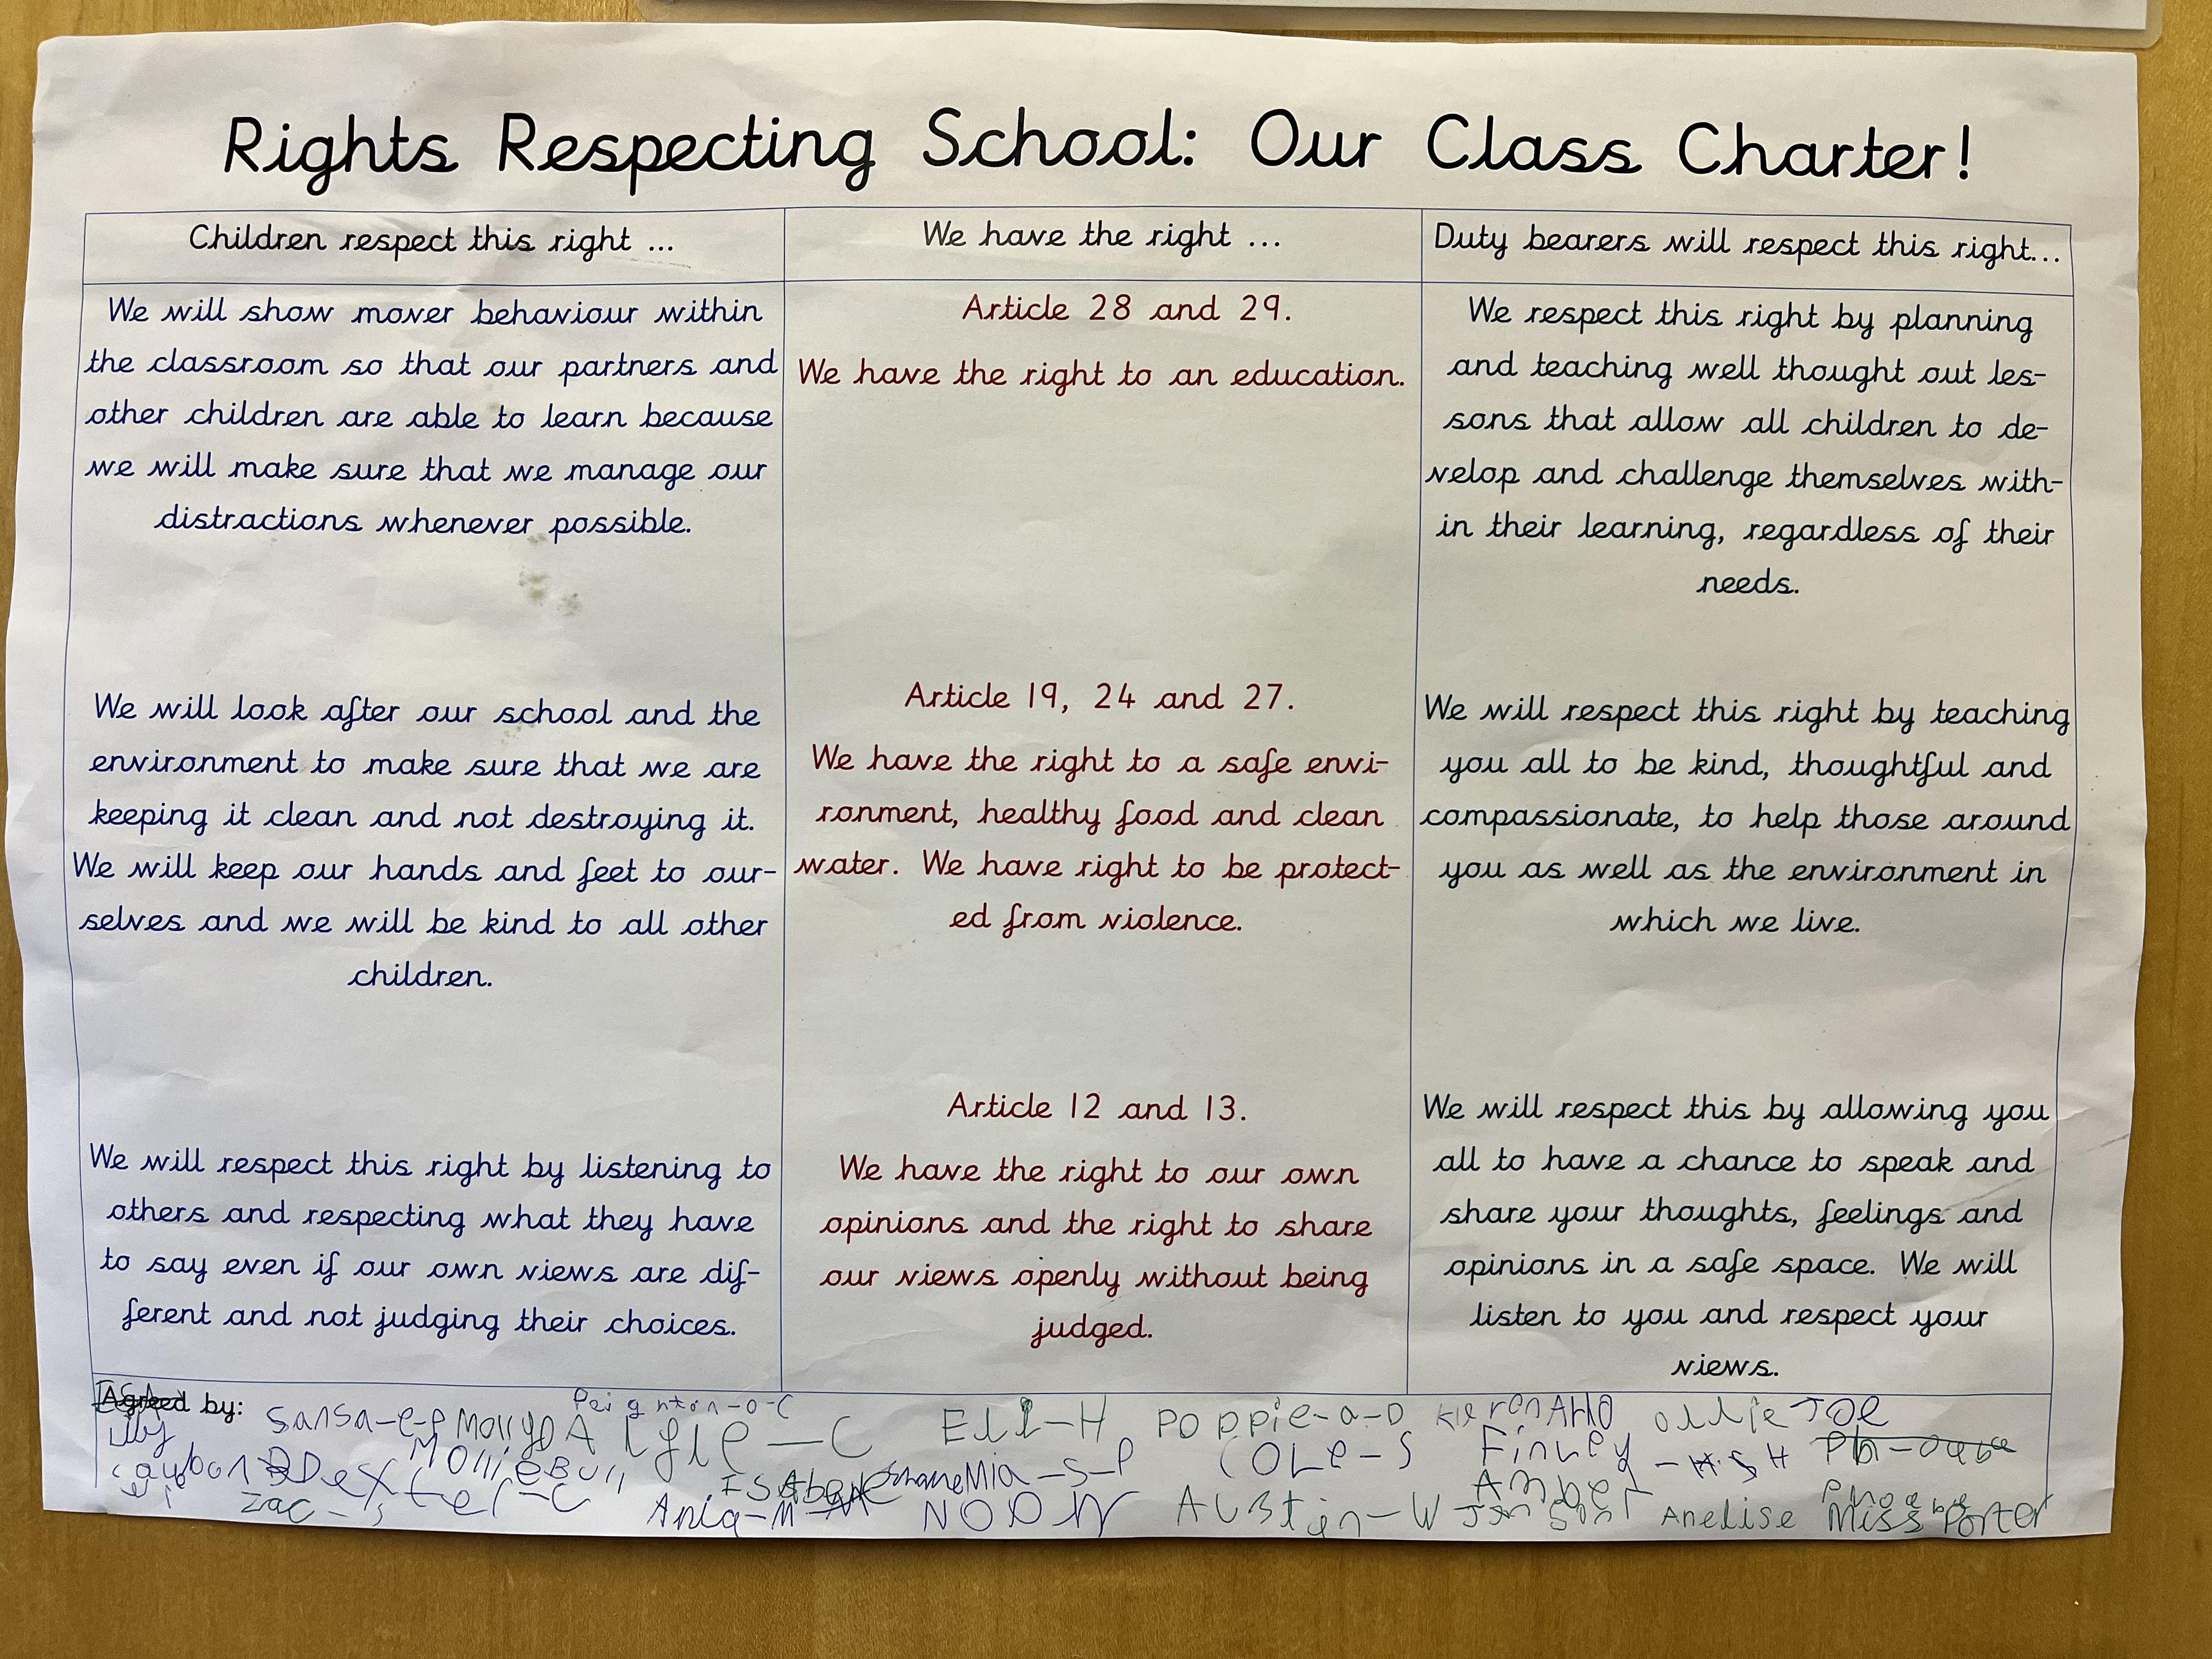 Rights Respecting School: Our Class Charter!
Children respect this right ...
We have the right ...
Duty bearers will respect this right...
We will show mover behaviour within
the classroom so that our partners and
other children are able to learn because
we will make sure that we manage our
distractions whenever possible.
Article 28 and 29.
We have the right to an education.
We respect this right by planning
and teaching well thought out les-
sons that allow all children to de-
velop and challenge themselves with-
in their learning, regardless of their
needs.
We will look after our school and the
environment to make sure that we are
keeping it clean and not destroying it.
We will keep our hands and feet to our-
selves and we will be kind to all other
children.
Article 19, 24 and 27.
We have the right to a safe envi-
ronment, healthy food and clean
water. We have right to be protect-
ed from violence.
We will respect this right by teaching
you all to be kind, thoughtful and
compassionate, to help those around
you as well as the environment in
which we live.
We will respect this right by listening to
others and respecting what they have
to say even if our own views are dif-
ferent and not judging their choices.
Article 12 and 13.
We have the right to our own
opinions and the right to share
our views openly without being
judged.
We will respect this by allowing you
all to have a chance to speak and
share your thoughts, feelings and
opinions in a safe space. We will
listen to you and respect your
views.
Agreed by:
Peignton-o-C
Sansa-e-P Lyle-C Elli-H Poppie-a-D Ollie Joe
Dexter-C Cole-S Finley
Zac-S Ania-M Noor Austin-W Anelise Miss Porter